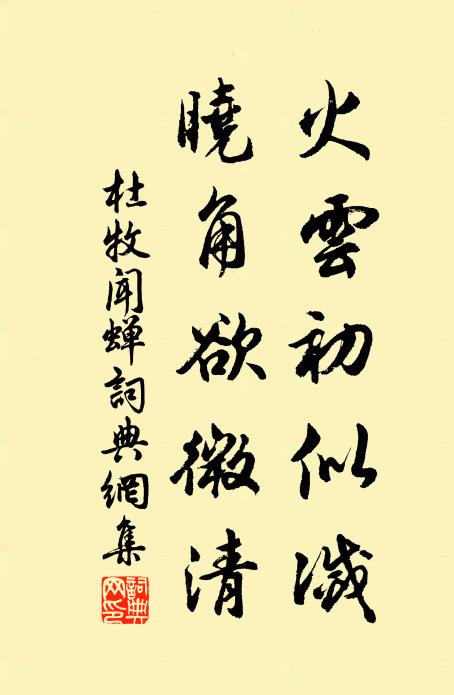 火雲初似滅
曉角欲微清
杜牧闻蟬詞典網集
詞典網印